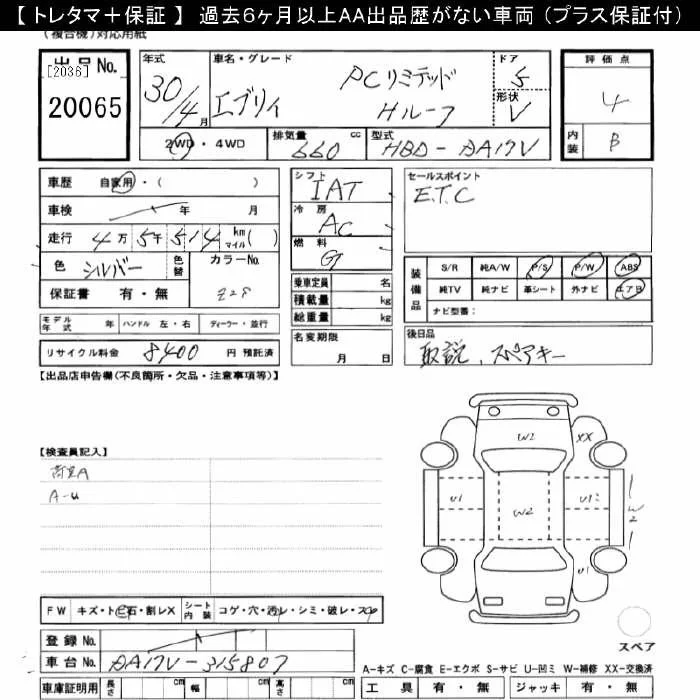 【 トレタマ＋保証 】 過去6ヶ月以上AA出品歴がない車両（プラス保証付）
(複合機)対応用紙
出品No.
[2036]
20065
年式
30/4月
車名・グレード
エブリィ
PCリミテッド
Hルーフ
ドア
5
形状
V
評価点
4
内装
B
2WD・4WD
排気量
660 cc
型式
HBD-DA17V
車歴 自家用・( )
車検 年 月
走行 4万5千514 km マイル( )
色 シルバー 色替
カラーNo.
Z2S
保証書 有・無
シフト
IAT
冷房
AC
燃料
G
乗車定員 名
積載量 kg
総重量 kg
セールスポイント
E.T.C
装備品
S/R 純A/W P/S P/W ABS
純TV 純ナビ 革シート 外ナビ エアB
ナビ型番:
モデル年式 年 ハンドル 左・右 ディーラー・並行
リサイクル料金 8400 円 預託済
名変期限
月 日
後日品
取説、スペアキー
【出品店申告欄(不良箇所・欠品・注意事項等)】
【検査員記入】
荷室A
A-U
W2
XX
U1
W2
U1
W2
U1
FW キズ・ト石・割レX
シート内装 コゲ・穴・汚レ・シミ・破レ・スレ
登録No.
車台No. DA17V-315807
スペア
車庫証明用 長さ cm 幅 cm 高さ cm
A-キズ C-腐食 E-エクボ S-サビ U-凹ミ W-補修 XX-交換済
工具 有・無 ジャッキ 有・無